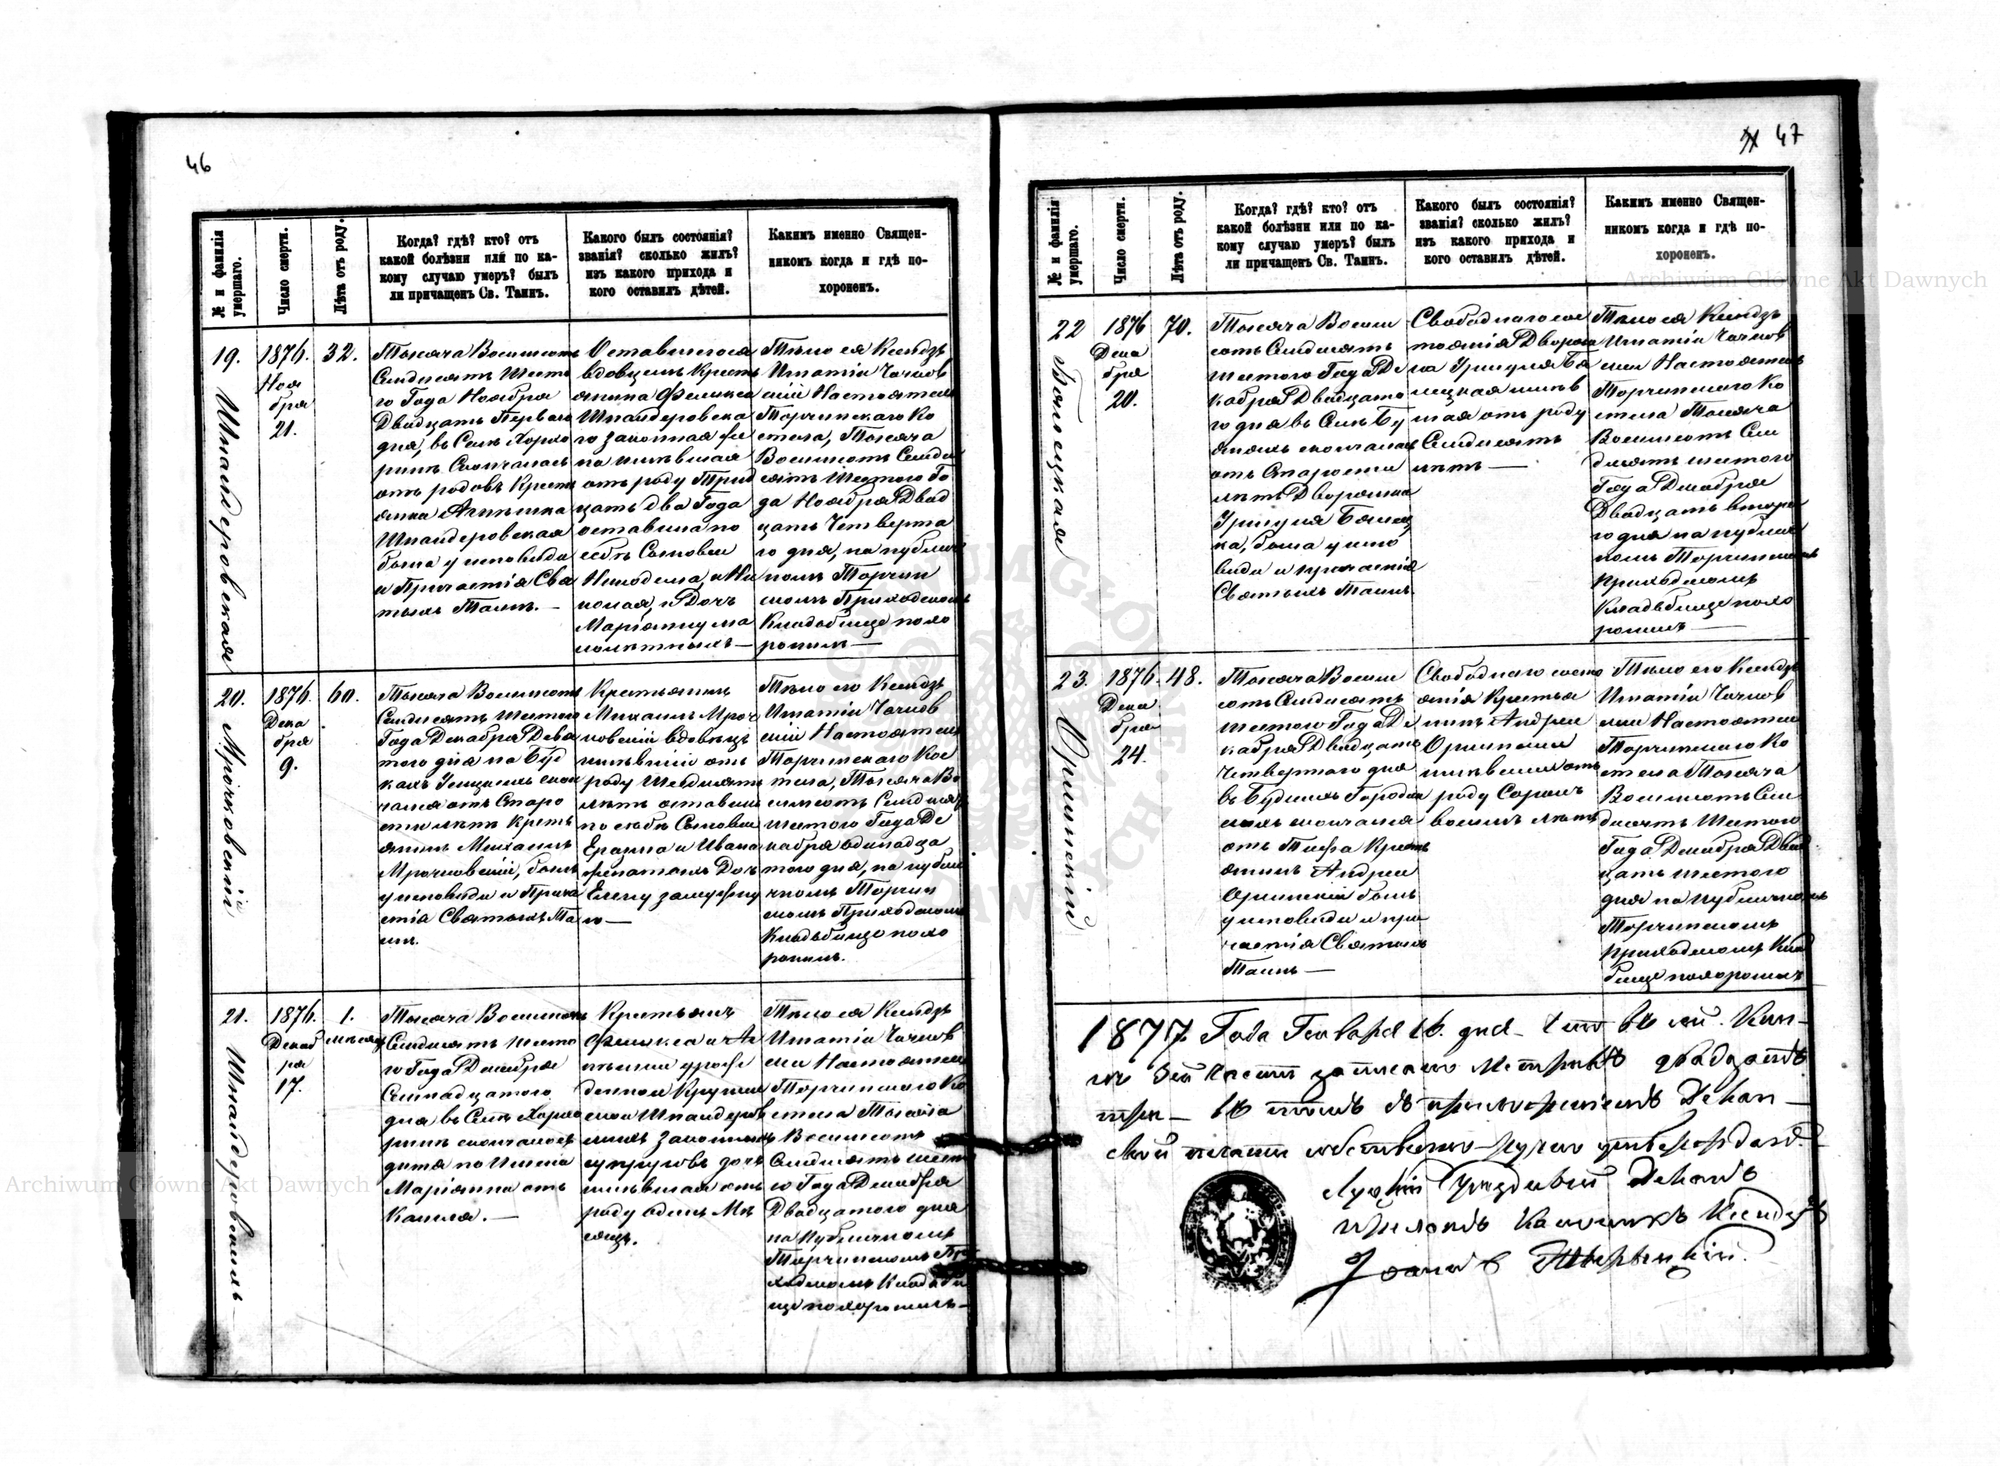 46
№ и фамилія умершаго.
Число смерти.
Лѣта отъ роду.
Когда? гдѣ? кто? отъ
какой болѣзни или по ка-
кому случаю умеръ? былъ
ли причащенъ Св. Таинъ.
Какого былъ состоянія?
званія? сколько жилъ?
изъ какого прихода и
кого оставилъ дѣтей.
Какимъ именно Священ-
никомъ когда и гдѣ по-
хороненъ.
19.
Шпандеровская
1876.
Ноя
бря
21.
32.
Тысяча Восемсотъ
Семдесятъ Шест
го Года Ноября
Двадцать Перваго
дня, въ Селѣ Хорло
Скончалась
отъ родовъ Крест
янка
Шпандеровская
была у исповѣди
и Причастія Свя
тыхъ Таинъ. —
Оставшегося
вдовцемъ Крест
янина Феликса
Шпандеровска
го законная же
на жившая
отъ роду Трид
цать два Года
оставила по
себѣ Сыновей
Никодема, и Ни
колая, и Дочь
Маріянну ма
лолѣтныхъ —
Тѣло ея Ксендзъ
Игнатій Чачков
скій Настоятель
Торчинскаго Ко
стела, Тысяча
Восемсотъ Семде
сятъ Шестого Го
да Ноября Двад
цать Четверта
го дня, на публич
номъ Торчин
скомъ Приходскомъ
Кладбище похо
ронилъ —
20.
Мрочковскій
1876.
Дека
бря
9.
60.
Тысяча Восемсотъ
Семдесятъ Шестого
Года Декабря Девя
того дня на Буд
кахъ скон
чался отъ Старо
сти лѣтъ Крест
янинъ Михаилъ
Мрочковскій, былъ
у исповѣди и Прича
стія Святыхъ Та
инъ.
Крестьянинъ
Михаилъ Мроч
ковскій вдовецъ
жившій отъ
роду Шесдесятъ
лѣтъ оставилъ
по себѣ Сыновей
и Ивана
женатыхъ Дочь
Елену замужню
ю —
Тѣло его Ксендзъ
Игнатій Чачков
скій Настоятель
Торчинскаго Кос
тела, Тысяча Во
семсотъ Семдесят
шестого Года Де
кабря одинадца
того дня, на публи
чномъ Торчин
скомъ Приходскомъ
Кладбище похо
ронилъ.
21.
1876.
Декаб
ря
17.
1.
мѣсяцъ
Тысяча Восемсотъ
Семдесятъ шесто
го Года Декабря
Семнадцатого
дня въ Селѣ
скончалось
дитя по Имени
Маріянна отъ
Кашля. —
Крестьянъ
Феликса и Аг
урож
денной
Шпандеров
скихъ законныхъ
супруговъ дочь
жившая отъ
роду одинъ Мѣ
сяцъ.
Тѣло ея Ксендзъ
Игнатій Чачков
скій Настоятель
Торчинскаго Ко
стела Тысяча
Восемсотъ
Семдесятъ шест
го Года Декабря
Двадцатого дня
на Публичномъ
Торчинскомъ При
ходскомъ Кладби
ще похоронилъ —
47
№ и фамилія умершаго.
Число смерти.
Лѣта отъ роду.
Когда? гдѣ? кто? отъ
какой болѣзни или по ка-
кому случаю умеръ? былъ
ли причащенъ Св. Таинъ.
Какого былъ состоянія?
званія? сколько жилъ?
изъ какого прихода и
кого оставилъ дѣтей.
Какимъ именно Священ-
никомъ когда и гдѣ по-
хороненъ.
22
1876
Дека
бря
20.
70.
Тысяча Восем
сотъ Семдесятъ
шестого Года Де
кабря Двадцато
го дня въ Селѣ Бу
скончалась
отъ Старости
лѣтъ Дворянка
Урсуля
была у испо
вѣди и причастія
Святыхъ Таинъ.
Свободнаго сос
тоянія Дворян
ка Урсуля
жив
шая отъ роду
Семдесятъ
лѣтъ —
Тѣло ея Ксендзъ
Игнатій Чачков
скій Настоятель
Торчинскаго Ко
стела Тысяча
Восемсотъ Сем
десятъ шестого
Года Декабря
Двадцать второ
го дня на публич
номъ Торчинскомъ
Приходскомъ
Кладбище похо
ронилъ —
23.
Оришскій
1876.
Дека
бря
24.
48.
Тысяча Восем
сотъ Семдесятъ
шестого Года Де
кабря Двадцать
Четвертого дня
въ
скончался
отъ Тифа Крест
янинъ Андрей
Оришскій былъ
у исповѣди и при
частія Святыхъ
Таинъ —
Свободнаго состо
янія Крестья
нинъ Андрей
жившій отъ
роду Сорокъ
восемь лѣтъ
Тѣло его Ксендзъ
Игнатій Чачков
скій Настоятель
Торчинскаго Ко
стела Тысяча
Восемсотъ Сем
десятъ Шестого
Года Декабря Двад
цать шестого
дня на публичномъ
Торчинскомъ
приходскомъ Клад
бище похоронилъ
1877 Года Генваря 16. дня — Что въ сей Кни-
въ 3ей части записано Метрикъ двадцать
три — въ томъ съ приложеніемъ Декан-
ской печати собственно-ручно утверждаю
Луцкій Уѣздный Деканъ
Каноникъ Ксендзъ
Archiwum Główne Akt Dawnych
Archiwum Główne Akt Dawnych